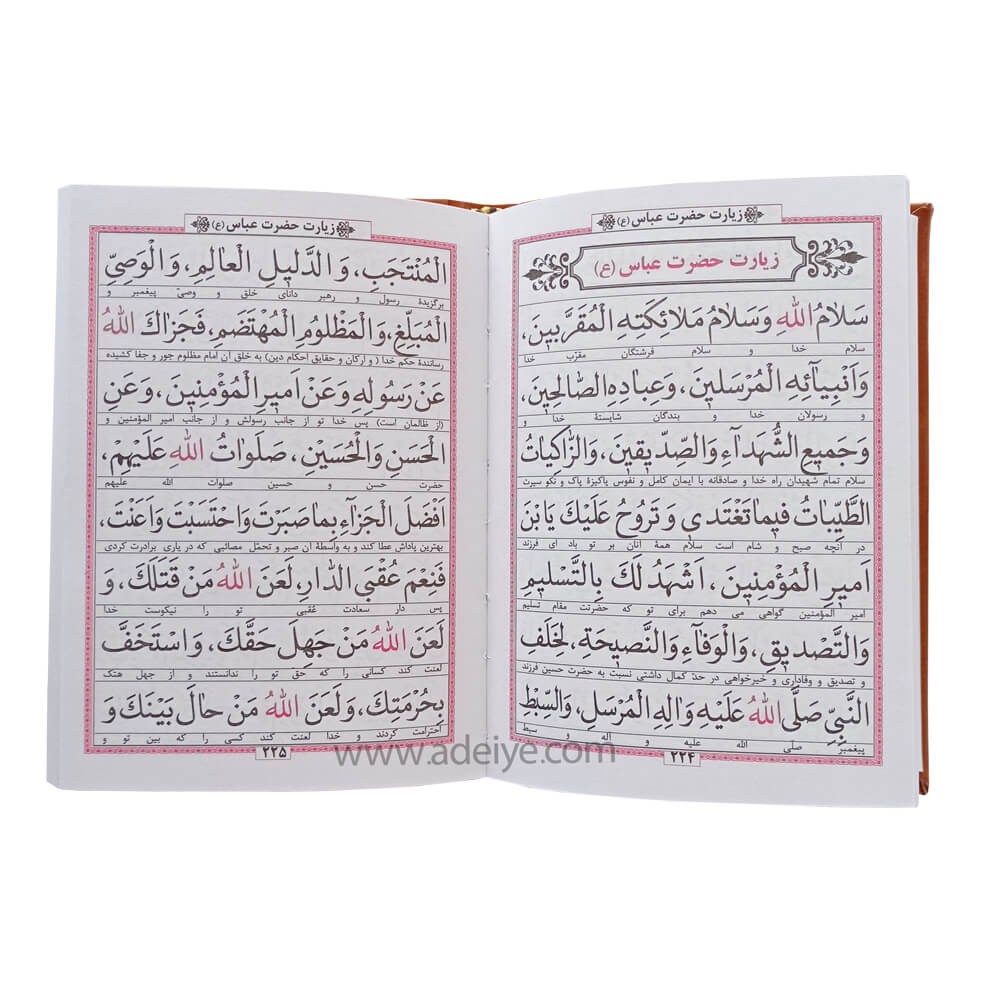 زیارت حضرت عباس (ع)
زیارت حضرت عباس (ع)
سَلامُ اللهِ وَسَلامُ مَلائِکَتِهِ الْمُقَرَّبینَ،
سلام خدا و سلام فرشتگان مقرّب خدا
وَاَنْبِیآئِهِ الْمُرْسَلینَ، وَعِبادِهِ الصّالِحینَ،
و رسولان خدا و بندگان شایستۀ خدا و
وَجَمیعِ الشُّهَدآءِ وَالصِّدّیقینَ، وَالزّاکِیاتُ
سلام تمام شهیدان راه خدا و صادقانه با ایمان کامل و نفوس پاکیزۀ پاک و نکو سیرت
الطَّیِّباتُ فیما تَغْتَدی وَ تَرُوحُ عَلَیْكَ یَابْنَ
در آنچه صبح و شام است سلام همۀ آنان بر تو باد ای فرزند
اَمیرِ الْمُؤْمِنینَ، اَشْهَدُ لَكَ بِالتَّسْلیمِ
امیر المؤمنین گواهی می دهم برای تو که حضرتت مقام تسلیم
وَالتَّصْدیقِ، وَالْوَفآءِ وَالنَّصیحَةِ، لِخَلَفِ
و تصدیق و وفاداری و خیرخواهی در حدّ کمال داشتی نسبت به حضرت حسین فرزند
النَّبِیِّ صَلَّی اللهُ عَلَیْهِ وَالِهِ الْمُرْسَلِ، وَالسِّبْطِ
پیغمبر صلی الله علیه و آله و سبط
۲۲۴
زیارت حضرت عباس (ع)
الْمُنْتَجَبِ، وَ الدَّلیلِ الْعالِمِ، وَ الْوَصِیِّ
برگزیدۀ رسول و رهبر دانای خلق و وصیّ پیغمبر و
الْمُبَلِّغِ، وَالْمَظْلُومِ الْمُهْتَضَمِ، فَجَزاكَ اللهُ
رسانندۀ حکم خدا ( و ارکان و حقایق احکام دین) به خلق آن امام مظلوم جور و جفا کشیده
عَنْ رَسُولِهِ وَعَنْ اَمیرِ الْمُؤْمِنینَ، وَعَنِ
(از ظالمان است) پس خدا تو از جانب رسولش و از جانب امیر المؤمنین و
الْحَسَنِ وَالْحُسَیْنِ، صَلَواتُ اللهِ عَلَیْهِمْ،
حضرت حسن و حسین صلوات الله علیهم
اَفْضَلَ الْجَزآءِ بِما صَبَرْتَ وَاحْتَسَبْتَ وَاَعَنْتَ،
بهترین پاداش عطا کند و به واسطۀ آن صبر و تحمّل مصائبی که در یاری برادرت کردی
فَنِعْمَ عُقْبَی الدّارِ، لَعَنَ اللهُ مَنْ قَتَلَكَ، وَ
پس دار سعادت عُقبی تو را نیکوست خدا
لَعَنَ اللهُ مَنْ جَهِلَ حَقَّكَ، وَ اسْتَخَفَّ
لعنت کند کسانی را که حق تو را ندانستند و از جهل هتک
بِحُرْمَتِكَ، وَ لَعَنَ اللهُ مَنْ حالَ بَیْنَكَ وَ
احترامت کردند و خدا لعنت کند کسی را که بین تو و
۲۲۵
www.adeiye.com